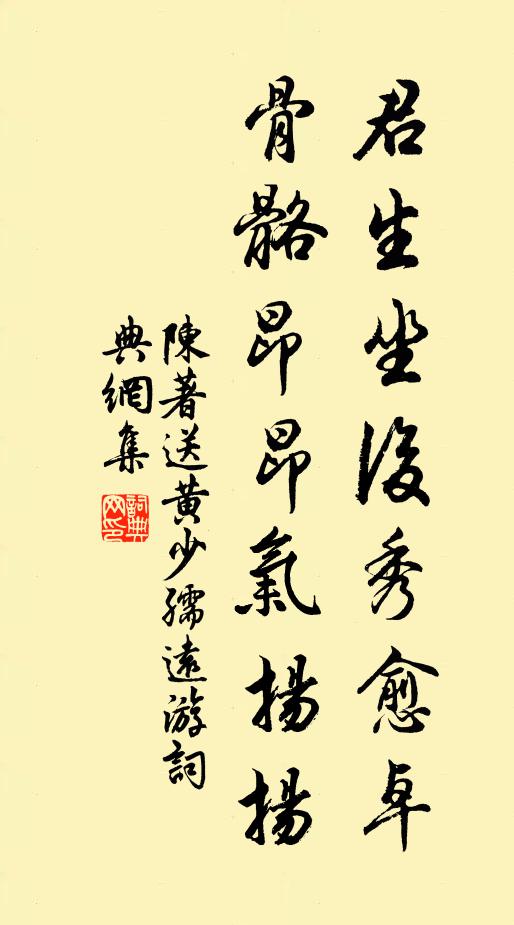 君生坐後秀愈卓
骨骼昂昂氣揚揚
陳著送黄少孺遠游詞
典網集
詞典
网印